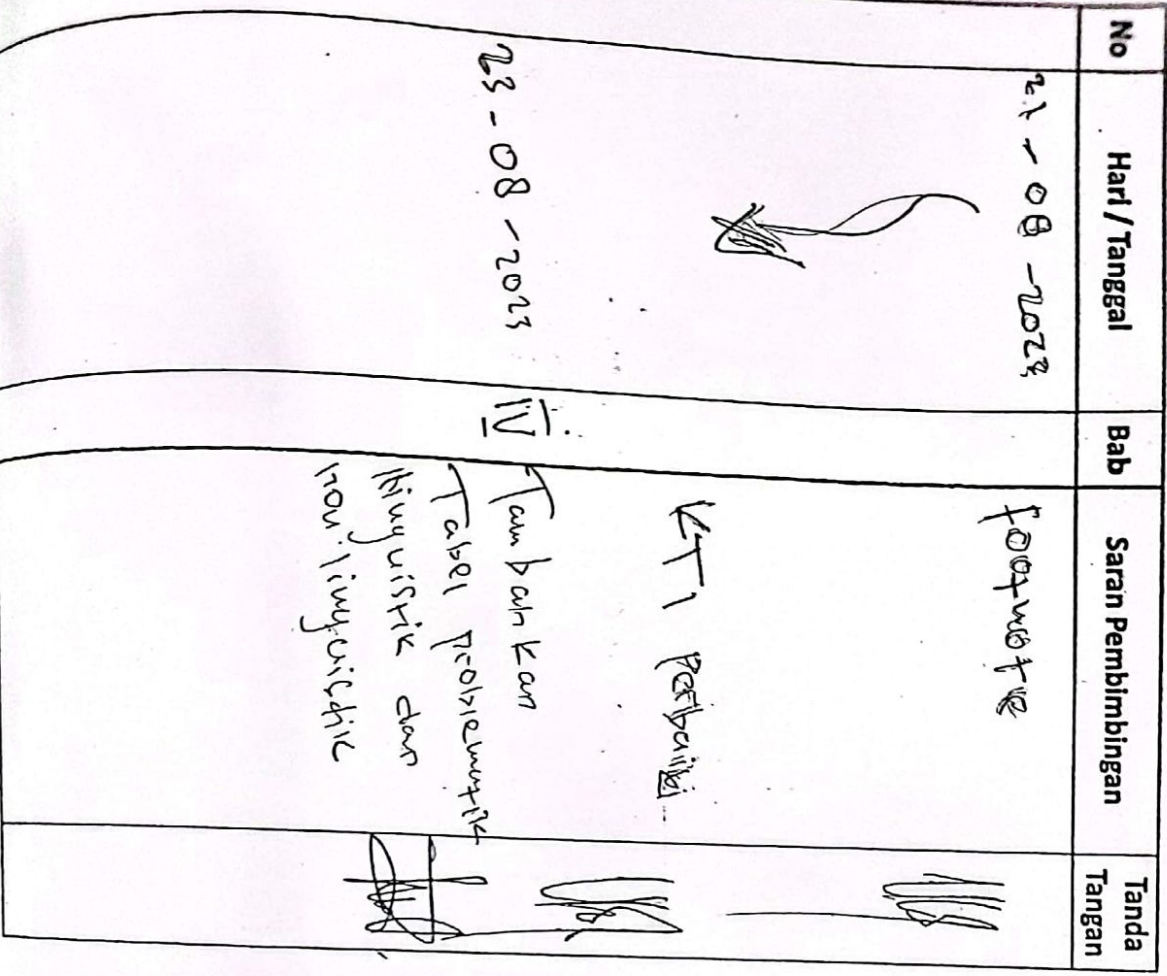 No
Hari / Tanggal
Bab
Saran Pembimbingan
Tanda
Tangan
21 - 08 - 2023
footnote
KTI perbaiki
23 - 08 - 2023
IV
Tambahkan
Tabel problematik
linguistik dan
non linguistik